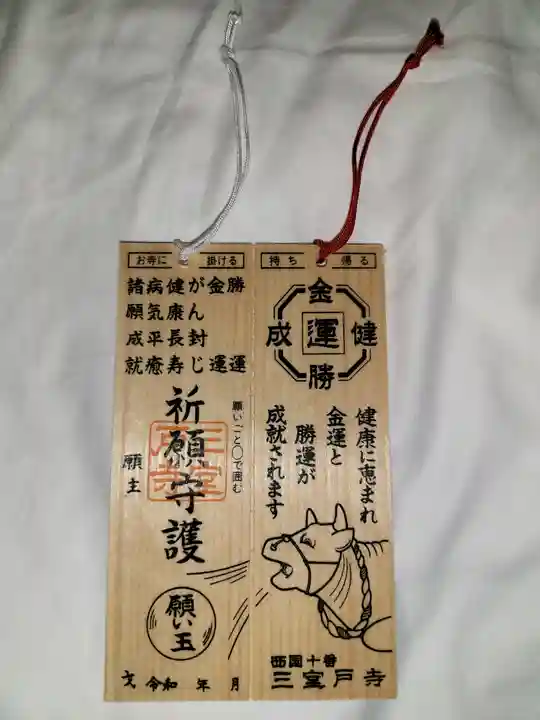 お寺に 掛ける
勝運
金運
がん封じ
健康長寿
病気平癒
諸願成就
願いごと〇で囲む
祈願守護
願主
願い玉
令和 年 月
持ち 帰る
金
成 運 健
勝
健康に恵まれ
金運と
勝運が
成就されます
西国十番
三室戸寺